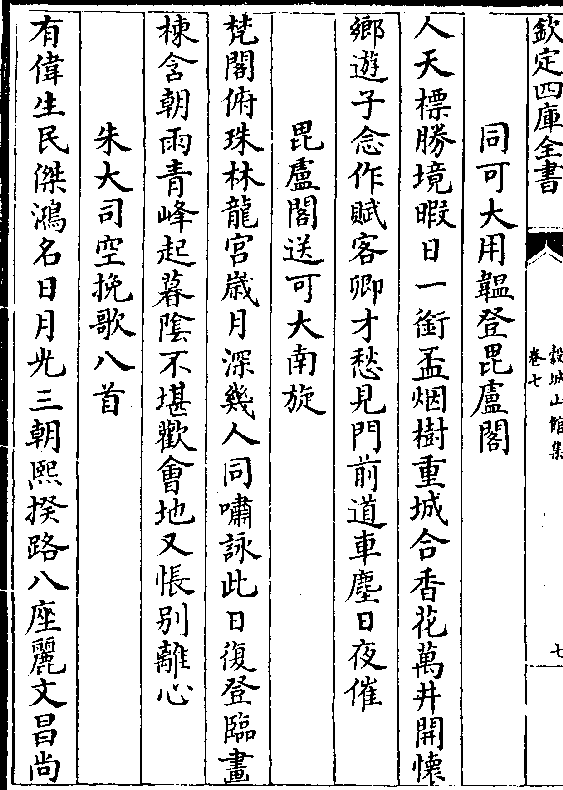 欽定四庫全書
榖城山館集
卷七
七
同可大用韞登毘盧閣
人天標勝境暇日一銜盃烟樹重城合香花萬井開懷
鄉遊子念作賦客卿才愁見門前道車塵日夜催
毘盧閣送可大南旋
梵閣俯珠林龍宮歲月深幾人同嘯詠此日復登臨畫
棟含朝雨青峰起暮陰不堪歡會地又悵别離心
朱大司空挽歌八首
有偉生民傑鴻名日月光三朝熙揆路八座麗文昌尚